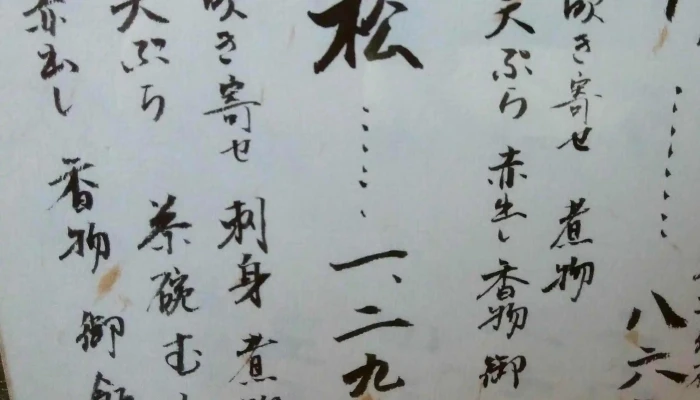 八六
吹き寄せ 煮物
天ぷら 赤出し 香物 御
松 ・・・・・ 一、二九
吹き寄せ 刺身 煮
天ぷら 茶碗む
赤出し 香物 御飯